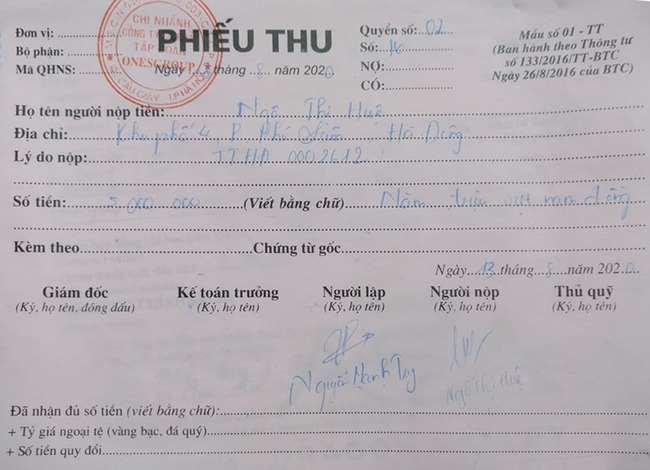 Đơn vị:
CHI NHÁNH
CÔNG TY
TẬP ĐOÀN
ONESGROUP
CẦU GIẤY - T.P HÀ NỘI
PHIẾU THU
Quyển số: 02
Mẫu số 01 - TT
Bộ phận:
Số: 16
(Ban hành theo Thông tư
số 133/2016/TT-BTC
Mã QHNS:
Ngày tháng 8 năm 2020
NỢ:
Ngày 26/8/2016 của BTC)
CÓ:
Họ tên người nộp tiền: Ngô Thị Huệ
Địa chỉ: Khu phố 4 P. Phú Hà Đông
Lý do nộp: TTHĐ 0002612
Số tiền: 5.000.000 (Viết bằng chữ) Năm triệu đồng
Kèm theo Chứng từ gốc
Ngày 13 tháng 8 năm 2020
Giám đốc Kế toán trưởng Người lập Người nộp Thủ quỹ
(Ký, họ tên, đóng dấu) (Ký, họ tên) (Ký, họ tên) (Ký, họ tên) (Ký, họ tên)
Nguyễn Mạnh Ngô Thị Huệ
Đã nhận đủ số tiền (viết bằng chữ):
+ Tỷ giá ngoại tệ (vàng bạc, đá quý)
+ Số tiền quy đổi